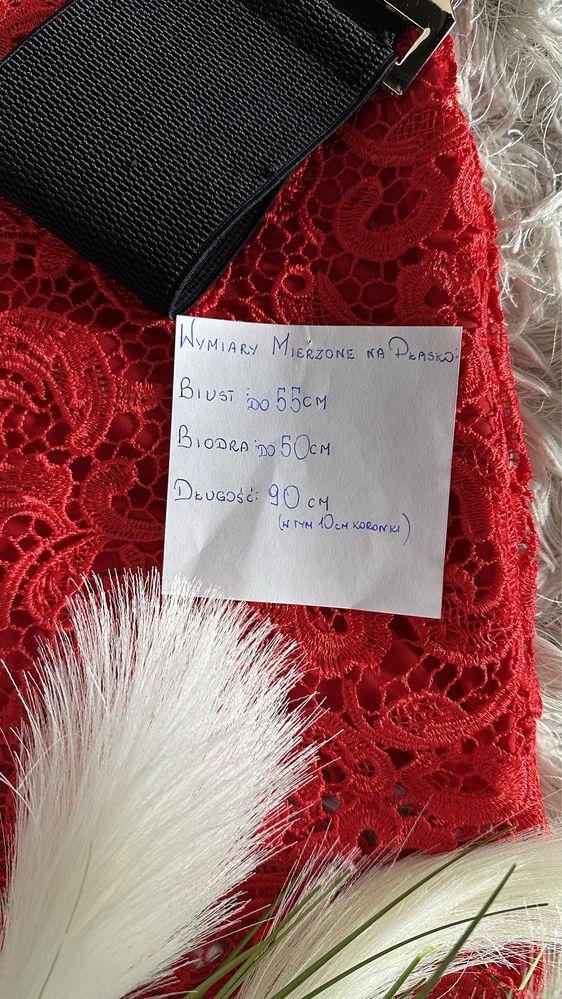 Wymiary Mierzone na Płasko:
Biust: do 55cm
Biodra: do 50cm
Długość: 90 cm
(w tym 10cm koronki)